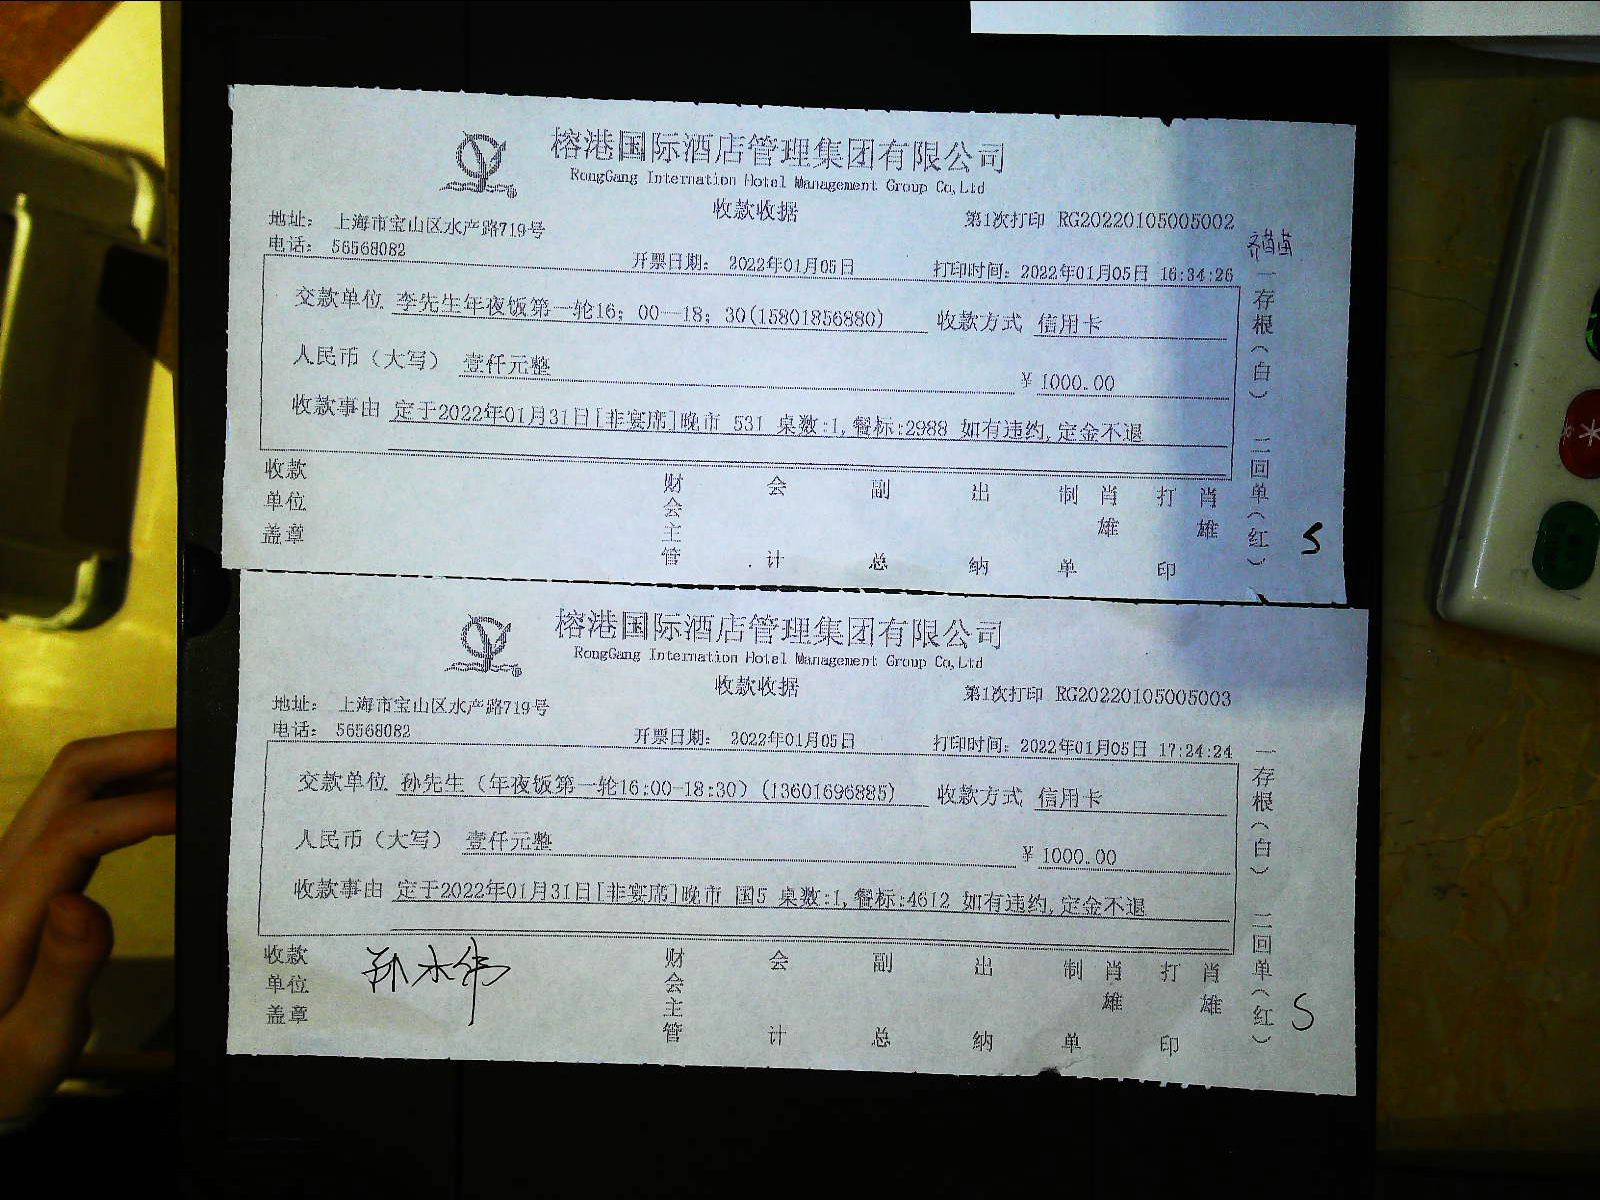 榕港国际酒店管理集团有限公司
RongGang Internation Hotal Management Group Co,Ltd
收款收据
第1次打印 RG20220105005002
地址： 上海市宝山区水产路719号
电话： 56568082
开票日期： 2022年01月05日
打印时间：2022年01月05日 16:34:26
交款单位 李先生年夜饭第一轮16；00—18；30(15801856880) 收款方式 信用卡
人民币（大写） 壹仟元整 ¥ 1000.00
收款事由 定于2022年01月31日[非宴席]晚市 531 桌数:1,餐标:2988 如有违约,定金不退
收款单位盖章 财会主管 会计 副总 出纳 制单 肖雄 打印 肖雄
一存根（白） 二回单（红）
S
榕港国际酒店管理集团有限公司
RongGang Internation Hotal Management Group Co,Ltd
收款收据
第1次打印 RG20220105005003
地址： 上海市宝山区水产路719号
电话： 56568082
开票日期： 2022年01月05日
打印时间：2022年01月05日 17:24:24
交款单位 孙先生（年夜饭第一轮16;00-18:30）(13601696885) 收款方式 信用卡
人民币（大写） 壹仟元整 ¥ 1000.00
收款事由 定于2022年01月31日[非宴席]晚市 国5 桌数:1,餐标:4612 如有违约,定金不退
收款单位盖章 孙永伟 财会主管 会计 副总 出纳 制单 肖雄 打印 肖雄
一存根（白） 二回单（红）
S